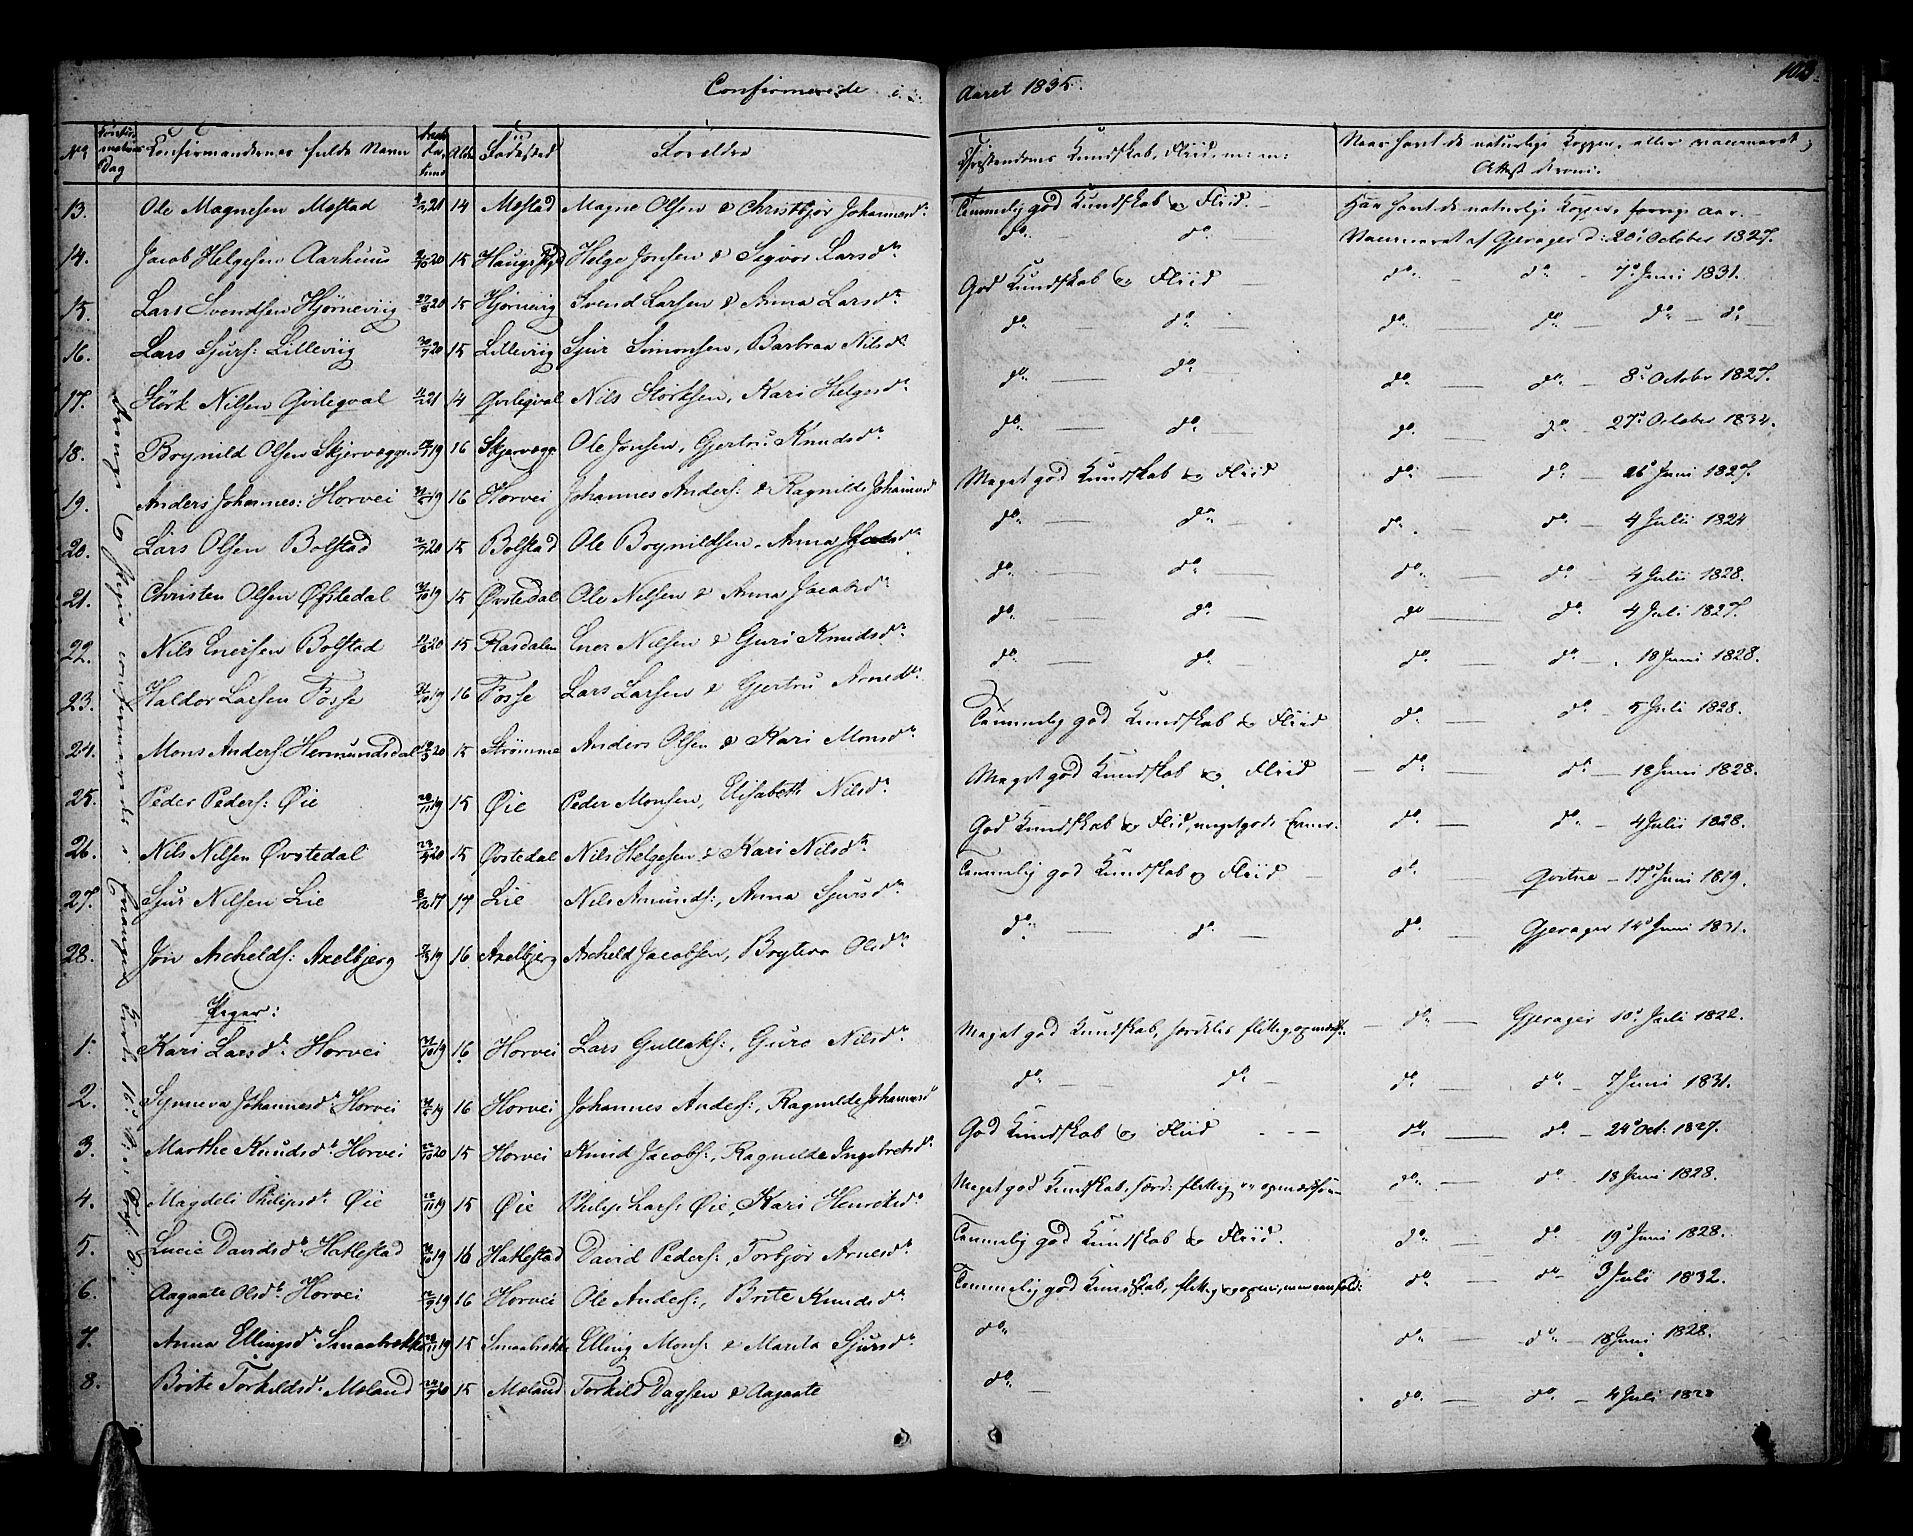 Confirmerede i Aaret 1835.
103
No Confirmations Dag Confirmandernes fulde Navn Alder Födested Foreldre Christendoms Kundskab, Fliid, m: m: Naar havt de naturlige Kopper, eller vaccineret,
Attest derom.
13. Ole Magnesen Mestad 21 14 Mestad Magne Olsen & Christbjør Johannesdr Temmelig god Kundskab & Fliid. Har havt de naturlige Kopper, forrige Aar.
14. Jacob Helgesen Aarhuus 20 15 Helge Jonsen & Sigvor Larsdr do do Vaccineret af Gjerager d: 20d October 1827.
15. Lars Svendsen Hjørneviig 20 15 Hjørneviig Svend Larsen & Anna Larsdr God Kundskab & Fliid do do 7d Juni 1831.
16. Lars Sjurs: Lilleviig 20 15 Lilleviig Sjur Simonsen, Barbraa Nilsdr do do do do do do
17. Störk Nilsen Qvilegval 21 14 Qvilegval Nils Störksen, Kari Helgesdr do do do do 8d October 1827.
18. Brynild Olsen 19 16 Ole Jonsen, Gjertru Knudsdr do do do do 27d October 1834.
19. Anders Johannes: Horvei 19 16 Horvei Johannes Anders: & Ragnilde Johannesd Meget god Kundskab & Fliid do do 26d Juni 1827.
20. Lars Olsen Bolstad 20 15 Bolstad Ole Brynildsen, Anna do do do do 4 Julii 1824
21. Christen Olsen Øfstedal 19 15 Øvstedal Ole Nilsen & Anna Jacobsdr do do do do 4 Julii 1828.
22. Nils Enersen Bolstad 20 15 Rasdalen Ener Nilsen & Guri Knudsdr do do do do 4 Juli 1827.
23. Haldor Larsen Fosse 19 16 Fosse Lars Larsen & Gjertru Arnedr do do do do 18 Juni 1828.
24. Mons Anders: Hermundsdal 20 15 Strømme Anders Olsen & Kari Monsdr Temmelig god Kundskab & Fliid do do 5 Juli 1828.
25. Peder Peders: Øie 19 15 Øie Peder Monsen, Elisabeth Nilsdr Meget god Kundskab & Fliid do do 18 Juni 1828.
26. Nils Nilsen Øvstedal 20 15 Øvstedal Nils Helgesen & Kari Nilsdr God Kundskab & Fliid, meget gode do do 4 Julii 1828.
27. Sjur Nilsen Lie 17 17 Lie Nils Amunds:, Anna Sjursdr Temmelig god Kundskab & Fliid do Gvitne 17d Juni 1819.
28. Jon Aschelds: Axelbjerg 19 16 Axelbjerg Ascheld Jacobsen, Olsdr do do do Gjerager 14d Juni 1831.
Piger:
1. Kari Larsdr Horvei 19 16 Horvei Lars Gullaks:, Guro Nilsdr Meget god Kundskab, do Gjerager 10d Juli 1822.
2. Synneva Johannesdr Horvei 19 16 Horvei Johannes Anders:, Ragnilde Johannesd do do do do 7 Juni 1831.
3. Marthe Knudsdr Horvei 20 15 Horvei Knud Jacobs:, Ragnilde Ingebretsdr God Kundskab & Fliid do do 24d Oct: 1827.
4. Magdeli Philipsdr Øie 19 15 Øie Philip Lars: Øie, Kari Henriksdr Meget god Kundskab, do do 18 Juni 1828.
5. Lucie Davidsdr Hatlestad 19 16 Hatlestad David Peders:, Torbjør Arnesdr Temmelig god Kundskab & Fliid. do do 19d Juni 1828.
6. Aagaate Olsdr Horvei 19 16 Horvei Ole Anders:, Brite Knudsdr Temmelig god Kundskab, do do 3 Juli 1832.
7. Anna Ellingsdr 19 15 Elling Mons: & Marita Sjursdr do do do 18 Juni 1828.
8. Brite Torkildsdr Moland 20 15 Moland Torkild Dagsen & Aagaate do do do 4 Juli 1828